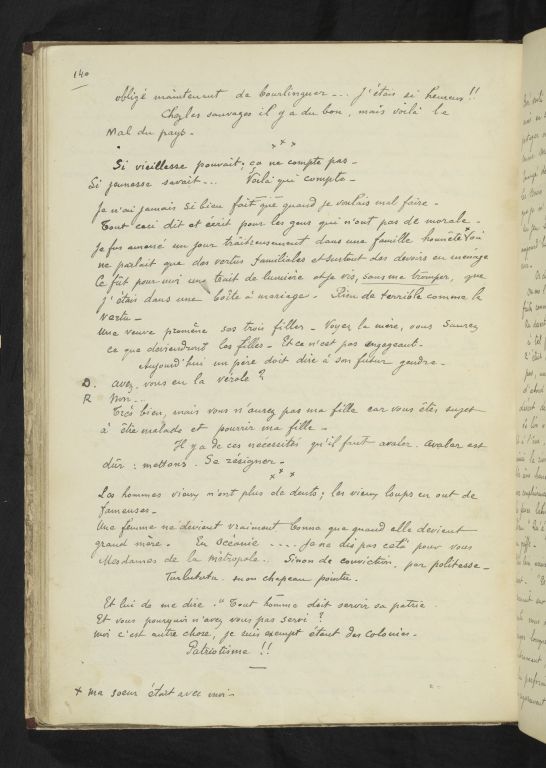 140
obligé maintenant de bourlinguer --- j'étais si heureux !!
Chez les sauvages il y a du bon, mais voilà le
Mal du pays -
× × ×
Si vieillesse pouvait ; ça ne compte pas -
Si jeunesse savait --- Voilà qui compte -
Je n'ai jamais si bien fait que quand je voulais mal faire -
Tout ceci dit et écrit pour les gens qui n'ont pas de morale -
Je fus amené un jour traîtreusement dans une famille honnête × où
ne parlait que des vertus familiales et surtout des devoirs en ménage
Ce fût pour moi un trait de lumière et je vis, sans me tromper, que
j'étais dans une boîte à mariage - Rien de terrible comme la
vertu -
Une veuve promène ses trois filles - Voyez la mère, vous saurez
ce que deviendront les filles - Et ce n'est pas engageant -
Aujourd'hui un père doit dire à son futur gendre -
D. avez-vous eu la vérole ?
R Non ---
Très bien, mais vous n'aurez pas ma fille car vous êtes sujet
à être malade et pourrir ma fille -
Il y a de ces nécessités qu'il faut avaler. Avaler est
dûr : mettons. Se résigner -
× × ×
Les hommes vieux n'ont plus de dents ; les vieux loups en ont de
fameuses -
Une femme ne devient vraiment bonne que quand elle devient
grand mère - En Océanie ---- Je ne dis pas celà pour vous
Mesdames de la métropole. Sinon de conviction, par politesse -
Turlututu. mon chapeau pointu.
Et lui de me dire. " Tout homme doit servir sa patrie.
Et vous pourquoi n'avez vous pas servi ?
moi c'est autre chose, je suis exempt étant des colonies.
Patriotisme !!
× ma soeur était avec moi -